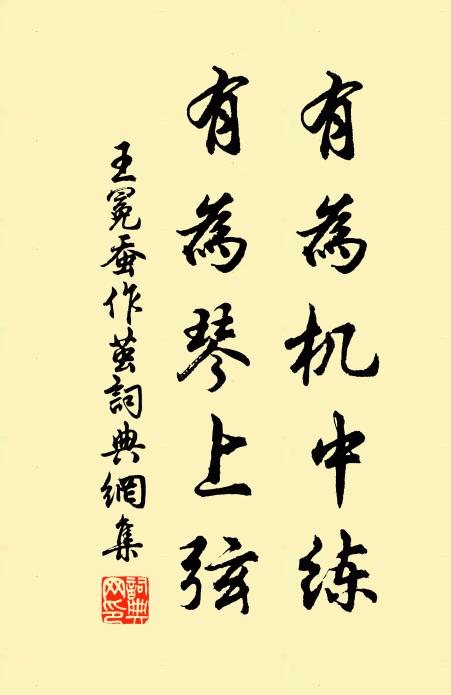 有為机中练
有為琴上弦
王冕蚕作茧詞典網集
詞典網印